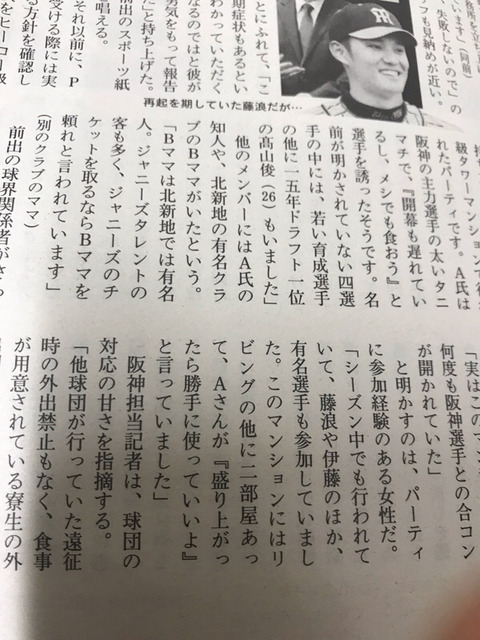 います」(同前)
失敗しないので」の
フも見納めが近い。
再起を期していた藤浪だが…
とにふれて、「こ
期症状もあるとい
わかっていただく
なるのではと彼が
勇気をもって報告
たと持ち上げた。
前出のスポーツ紙
唱える。
それ以前に、P
受ける際には実
る方針を確認し
級タワーマンションで行
れたパーティです。A氏は
阪神の主力選手の太いタニ
マチで、『開幕も遅れてい
るし、メシでも食おう』と
選手を誘ったそうです。名
前が明かされていない四選
手の中には、若い育成選手
の他に一五年ドラフト一位
の髙山俊(26)もいました」
他のメンバーにはA氏の
知人や、北新地の有名クラ
ブのBママがいたという。
「Bママは北新地では有名
人。ジャニーズタレントの
客も多く、ジャニーズのチ
ケットを取るならBママを
頼れと言われています」
(別のクラブのママ)
前出の球界関係者がさら
「実はこのマン
何度も阪神選手との合コン
が開かれていた」
と明かすのは、パーティ
に参加経験のある女性だ。
「シーズン中でも行われて
いて、藤浪や伊藤のほか、
有名選手も参加していまし
た。このマンションにはリ
ビングの他に二部屋あっ
て、Aさんが『盛り上がっ
たら勝手に使っていいよ』
と言っていました」
阪神担当記者は、球団の
対応の甘さを指摘する。
「他球団が行っていた遠征
時の外出禁止もなく、食事
が用意されている寮生の外